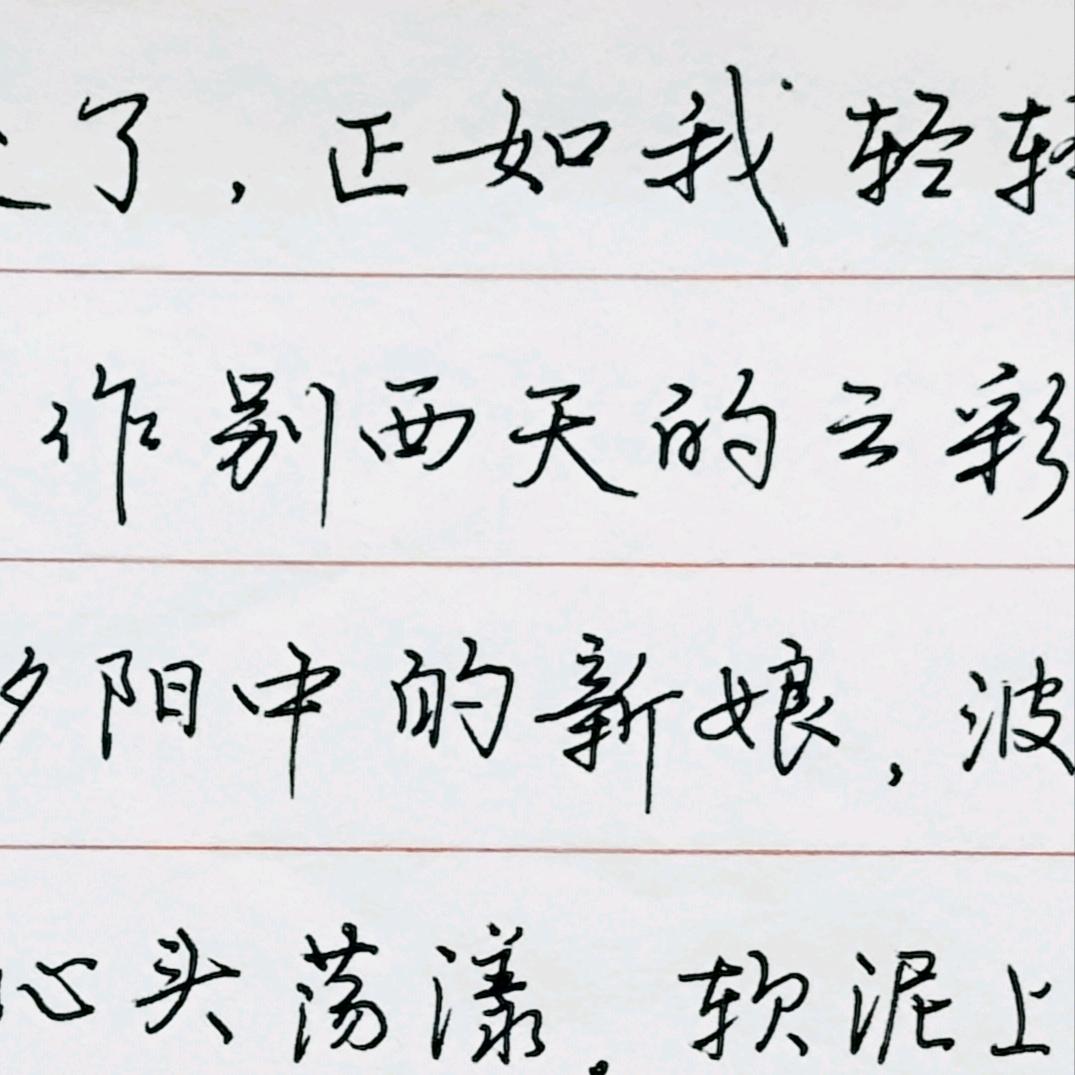 了，正如我轻轻
作别西天的云彩
夕阳中的新娘，波
心头荡漾。软泥上